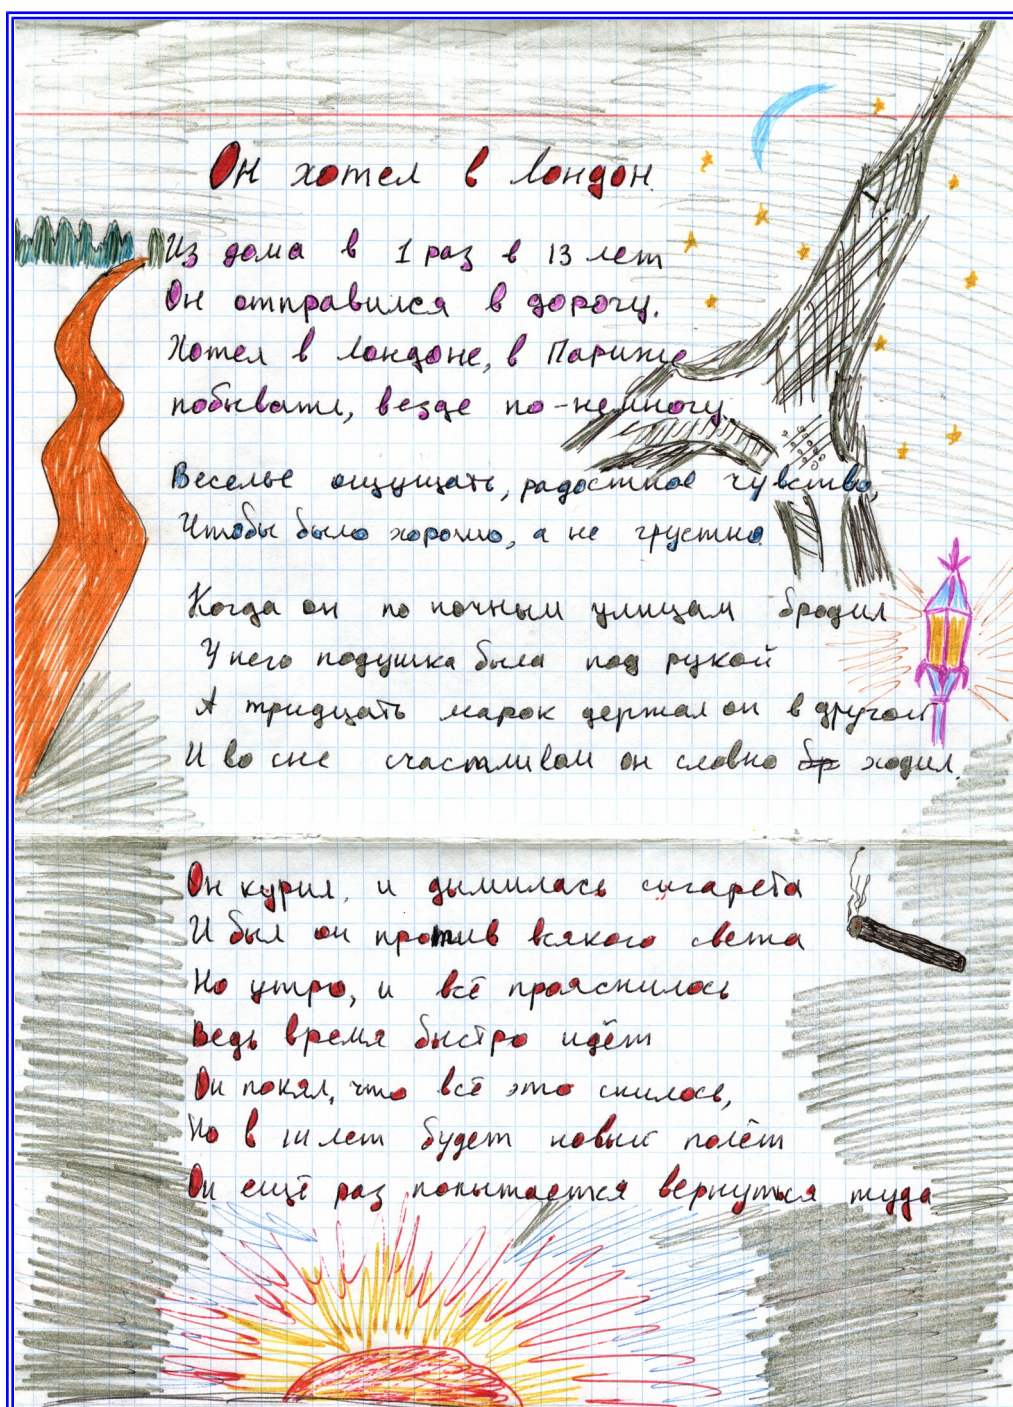 Он хотел в Лондон.
Из дома в 1 раз в 13 лет
Он отправился в дорогу.
Хотел в Лондоне, в Париже
побывать, везде по-немногу
Веселье ощущать, радостное чувство,
Чтобы было хорошо, а не грустно.
Когда он по ночным улицам бродил
У него подушка была под рукой
А тридцать марок держал он в другой
И во сне счастливом он словно бр ходил.
Он курил, и дымилась сигарета
И был он против всякого света
Но утро, и всё прояснилось
Ведь время быстро идёт
Он понял, что всё это снилось,
Но в 14 лет будет новый полёт
Он ещё раз попытается вернуться туда